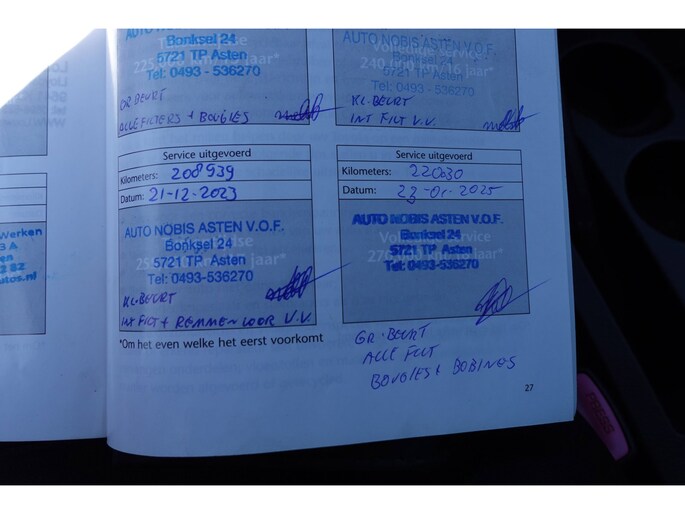 AUTO NOBIS ASTEN V.O.F.
Bonksel 24
5721 TP Asten
Tel: 0493 - 536270
GR. BEURT
ALLE FILTERS + BOUGIES
AUTO NOBIS ASTEN V.O.F.
Bonksel 24
5721 TP Asten
Tel: 0493-536270
KL. BEURT
INT FILT V.V.
Service uitgevoerd
Kilometers: 208939
Datum: 21-12-2023
AUTO NOBIS ASTEN V.O.F.
Bonksel 24
5721 TP Asten
Tel: 0493-536270
KL. BEURT
INT FILT + REMMEN VOOR V.V.
Service uitgevoerd
Kilometers: 220630
Datum: 23-01-2025
AUTO NOBIS ASTEN V.O.F.
Bonksel 24
5721 TP Asten
Tel: 0493-536270
GR. BEURT
ALLE FILT
BOUGIES + BOBINES
*Om het even welke het eerst voorkomt
27
Werken
PRESS